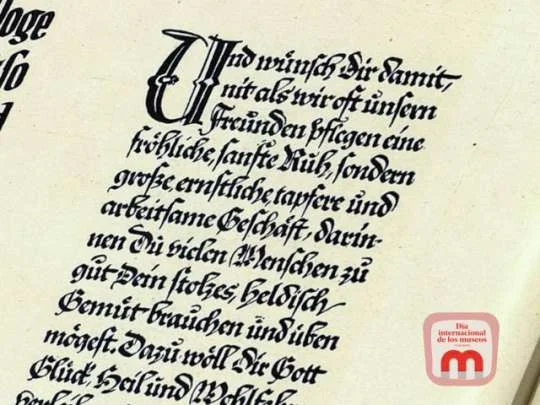 loge
so
Und wünsch Dir damit,
nit als wir oft unsern
Freunden pflegen eine
fröhliche, sanfte Ruh, sondern
große, ernstliche, tapfere und
arbeitsame Geschäft, darin-
nen Du vielen Menschen zu
gut Dein stolzes, heldisch
Gemüt brauchen und üben
mögest. Dazu wöll Dir Gott
Glück, Heil und
Día
internacional
de los museos
m